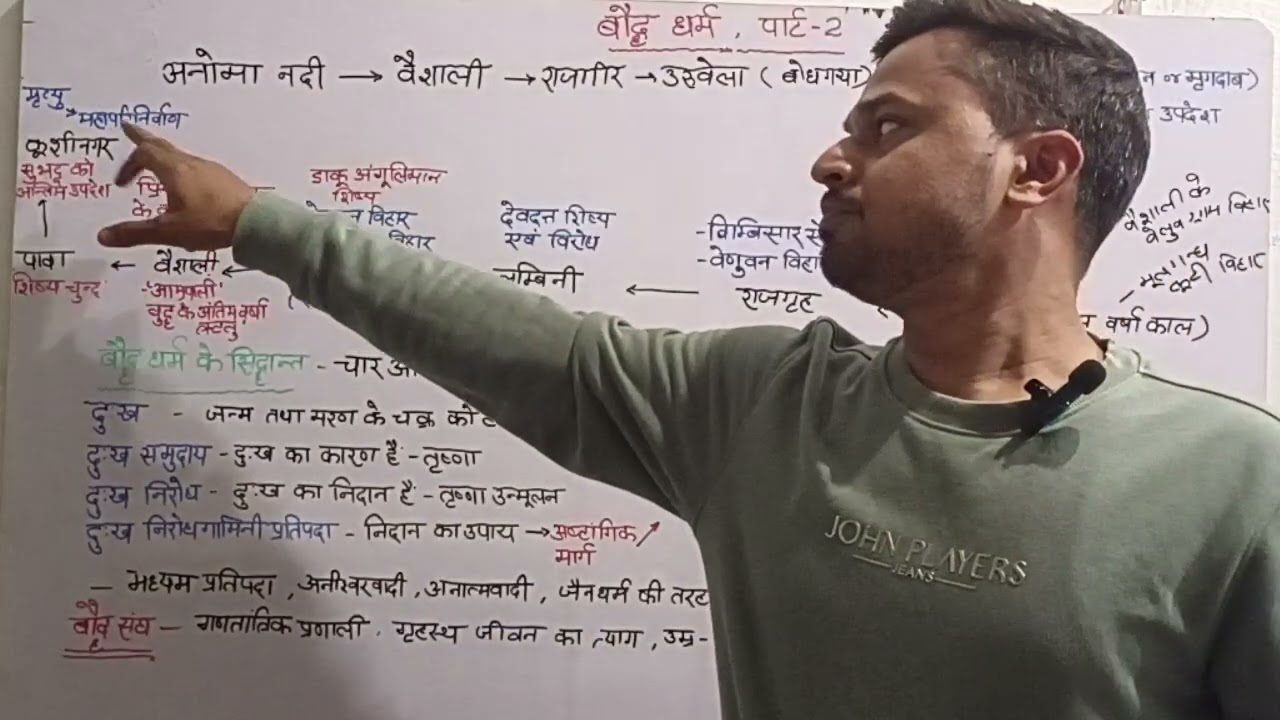 बौद्ध धर्म, पार्ट-2
अनोमा नदी → वैशाली → राजगीर → उरुवेला (बोधगया)
न or मृगदाब)
उपदेश
मृत्यु
→ महापरिनिर्वाण
कुशीनगर
सुभद्द को
अन्तिम उपदेश
डाकू अंगूलिमान
शिष्य
विहार
देवदत्त शिष्य
एवं विरोध
-विम्बिसार से
-वेणुवन विहा
वैशाली के
वेलुव ग्राम विहार
विहार
पावा ← वैशाली ←
म्बिनी ← राजगृह
शिष्य चुन्द
-'आम्रपाली'
बुद्ध के अंतिम वर्षा
वर्षा काल)
बौद्ध धर्म के सिद्धान्त - चार आ
दुःख - जन्म तथा मरण के चक्र को
दुःख समुदाय - दुःख का कारण है - तृष्णा
दुःख निरोध - दुःख का निदान है - तृष्णा उन्मूलन
दुःख निरोधगामिनी प्रतिपदा - निदान का उपाय → अष्टांगिक
मार्ग
- मध्यम प्रतिपदा, अनीश्वरवादी, अनात्मवादी, जैनधर्म की तरह
बौद्ध संघ - गणतांत्रिक प्रणाली, गृहस्थ जीवन का त्याग, उम्र -
JOHN PLAYERS
JEANS